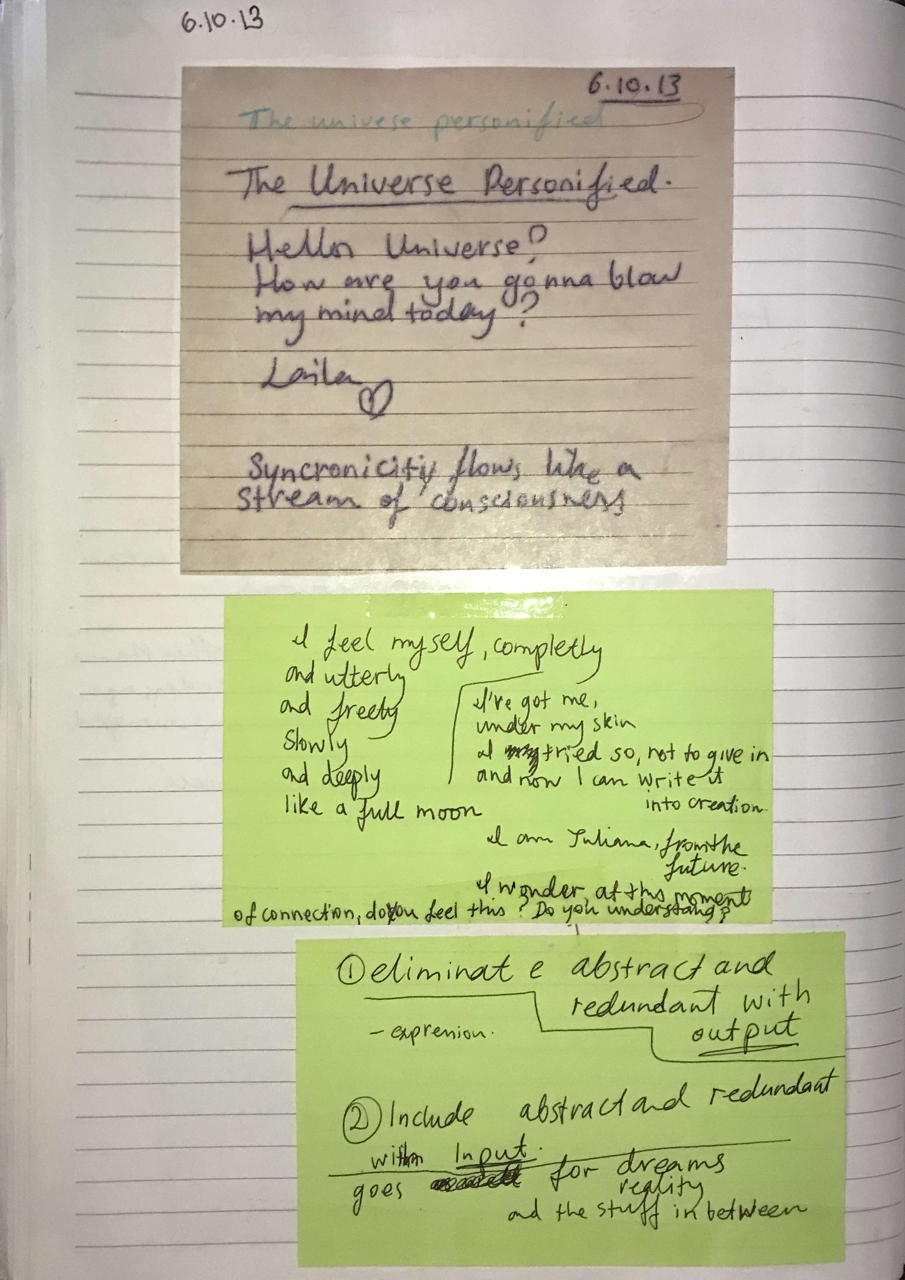 6.10.13
6.10.13
The univese personified
The Universe Personified.
Hello Universe?
How are you gonna blow
my mind today?
Laila
Syncronicity flows like a
stream of consciousness
I feel myself, completly
and utterly
and freely
slowly
and deeply
like a full moon
I've got me,
under my skin
I tried so, not to give in
and now I can write it
into creation.
I am Juliana, from the
future.
I wonder, at this moment
of connection, do you feel this? Do you understand?
① eliminate abstract and
redundant with
output
- expression.
② Include abstract and redundant
with Input.
goes for dreams
reality
and the stuff in between